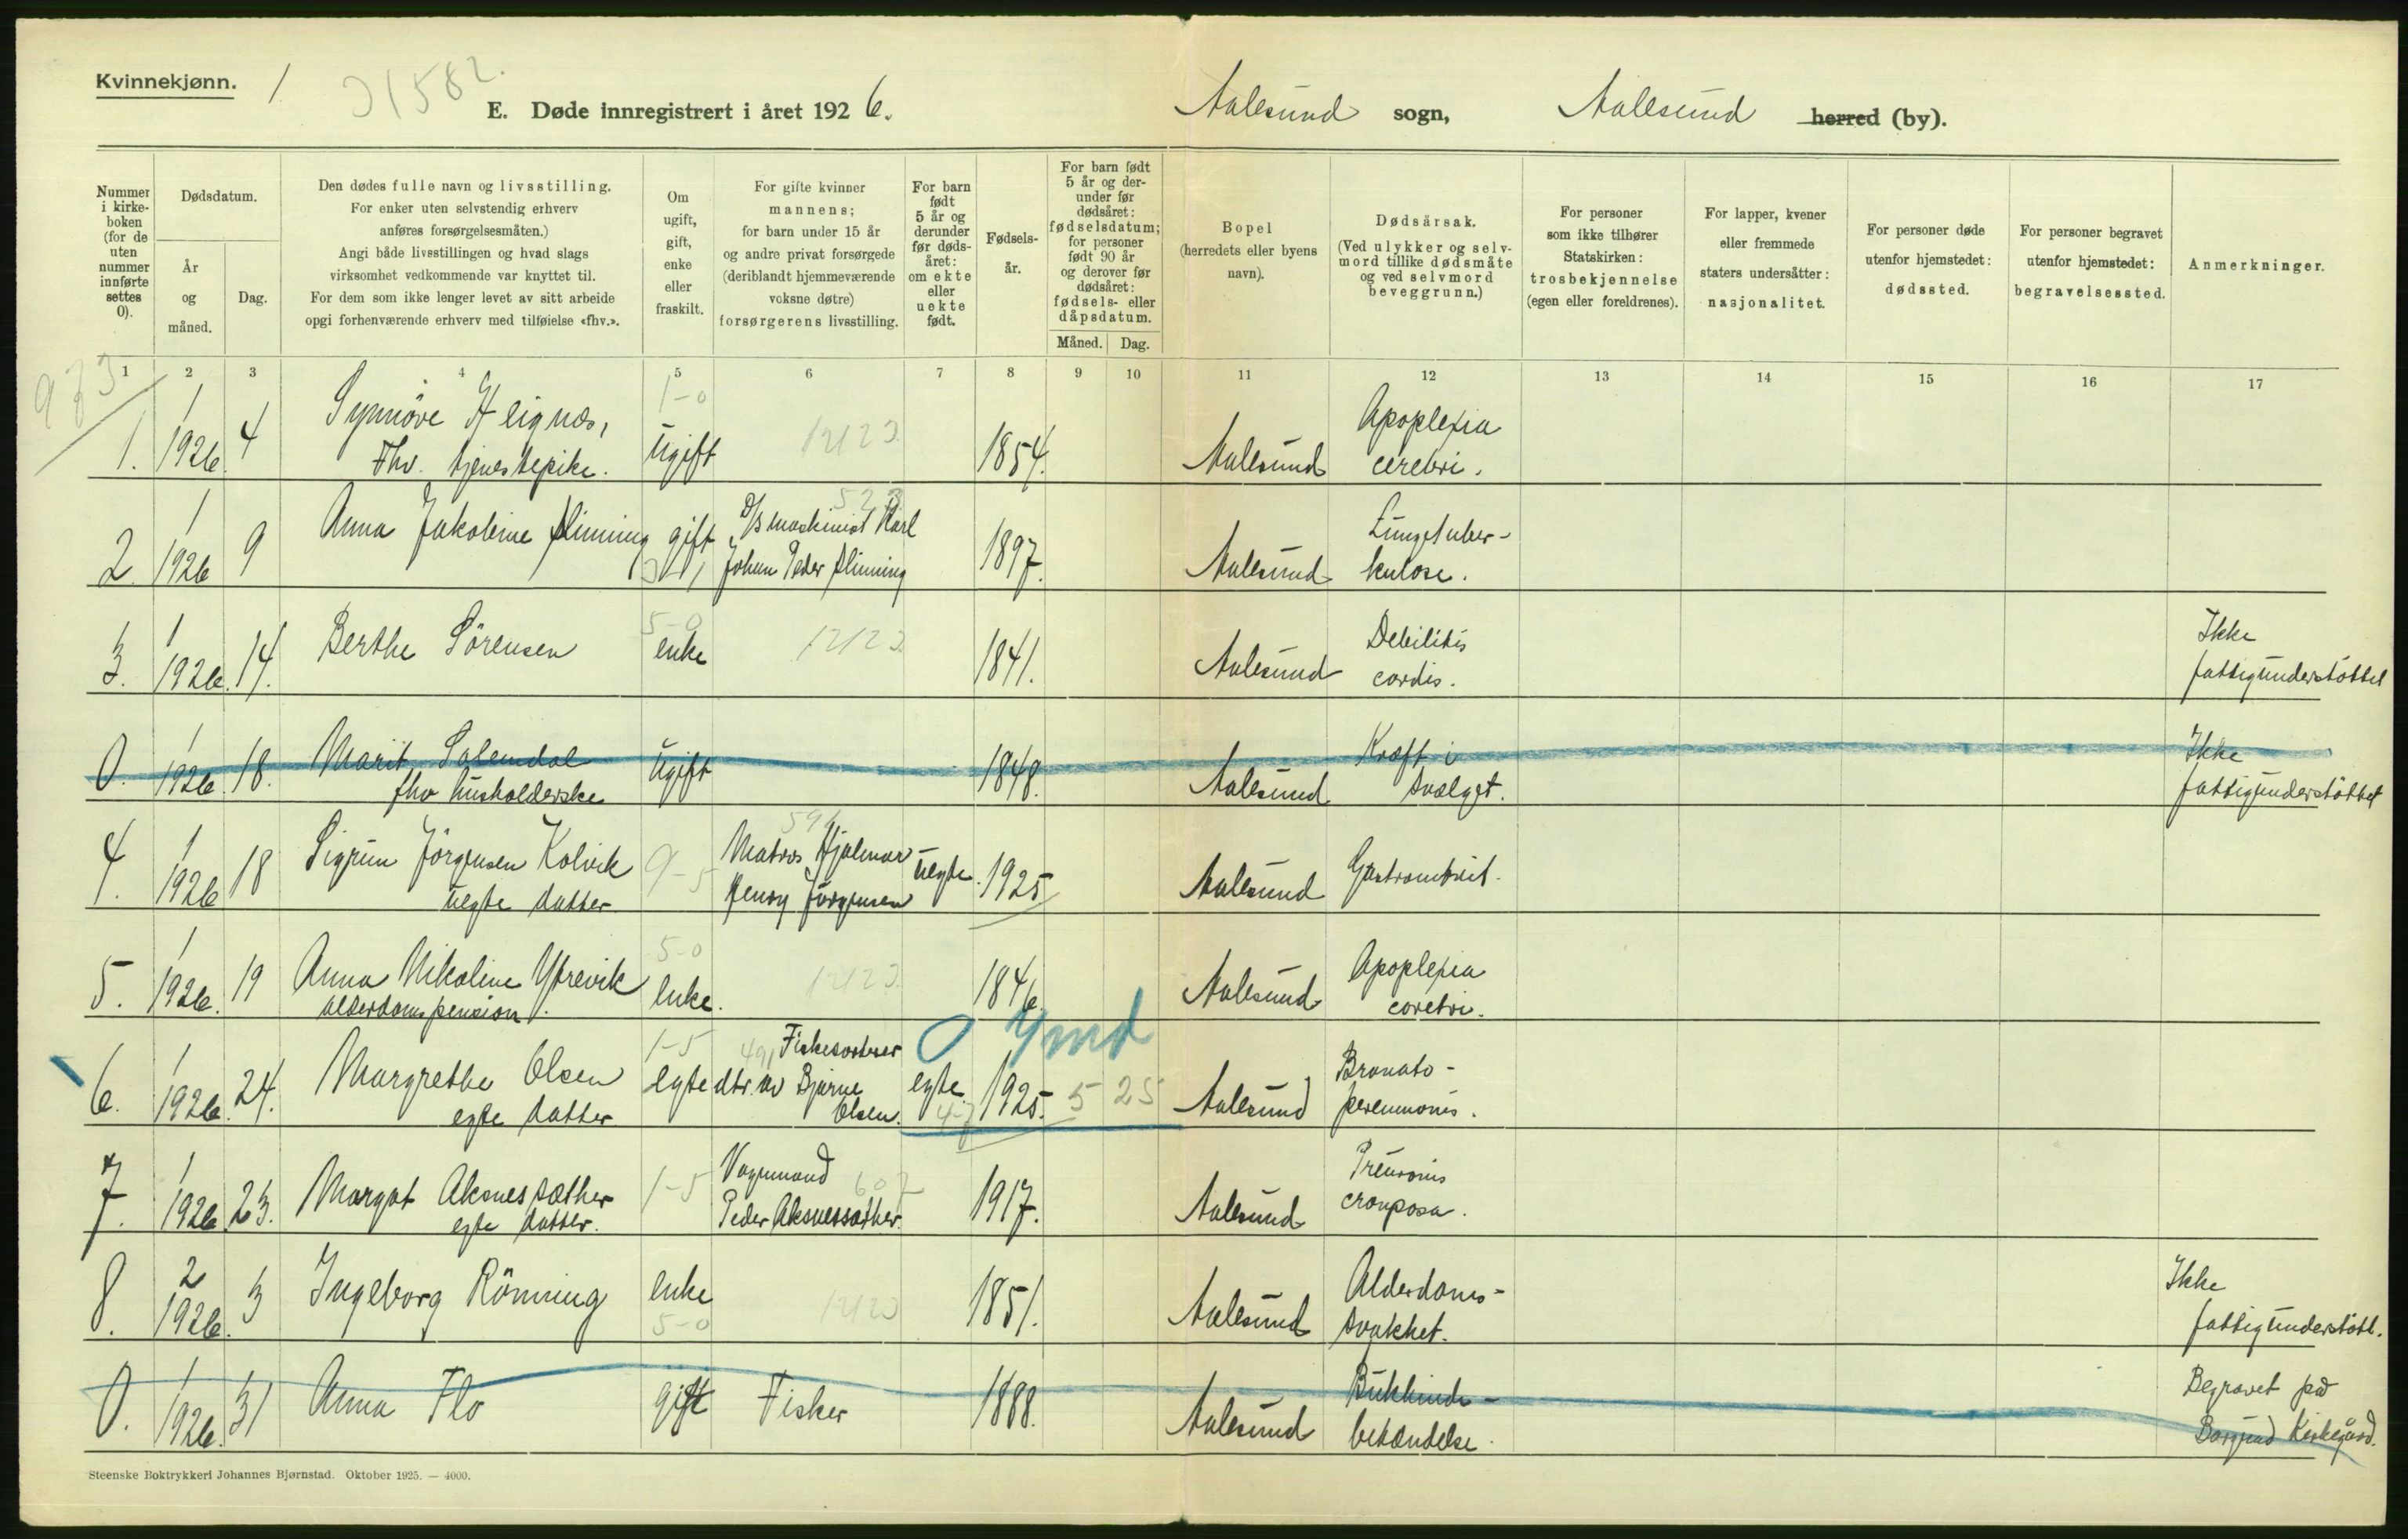 Kvinnekjønn.
1
31582.
E. Døde innregistrert i året 1926.
Aalesund sogn, Aalesund herred (by).
Nummer i kirkeboken (for de uten nummer innførte settes 0).
Dødsdatum.
År og måned.
Dag.
Den dødes fulle navn og livsstilling.
For enker uten selvstendig erhverv
anføres forsørgelsesmåten.)
Angi både livsstillingen og hvad slags
virksomhet vedkommende var knyttet til.
For dem som ikke lenger levet av sitt arbeide
opgi forhenværende erhverv med tilføielse «fhv.».
Om
ugift,
gift,
enke
eller
fraskilt.
For gifte kvinner
mannens;
for barn under 15 år
og andre privat forsørgede
(deriblandt hjemmeværende
voksne døtre)
forsørgerens livsstilling.
For barn
født
5 år og
derunder
før døds-
året:
om ekte
eller
uekte
født.
Fødsels-
år.
For barn født
5 år og der-
under før
dødsåret:
fødselsdatum;
for personer
født 90 år
og derover før
dødsåret:
fødsels- eller
dåpsdatum.
Måned. Dag.
Bopel
(herredets eller byens
navn).
Dødsårsak.
(Ved ulykker og selv-
mord tillike dødsmåte
og ved selvmord
beveggrunn.)
For personer
som ikke tilhører
Statskirken:
trosbekjennelse
(egen eller foreldrenes).
For lapper, kvener
eller fremmede
staters undersåtter:
nasjonalitet.
For personer døde
utenfor hjemstedet:
dødssted.
For personer begravet
utenfor hjemstedet:
begravelsessted.
Anmerkninger.
1 2 3 4 5 6 7 8 9 10 11 12 13 14 15 16 17
1. 1 1926. 4 Synnöve Hlignæs, Fhv. tjenestepike. 1-0 Ugift 12123 1854. Aalesund Apoplexia cerebri.
2 1 1926 9 Anna Jakobine Slinning gift D/S maskinist Karl Johan Peder Slinning 1897. Aalesund Lungetuber-kulose.
3. 1 1926. 14. Berthe Sörensen 5-0 enke 12123 1841. Aalesund Debilitis cordis. Ikke fattigunderstöttet
0. 1 1926. 18. Marit Solemdal fhv husholderske Ugift 1848. Aalesund Kræft i svælget. Ikke fattigunderstöttet
4. 1 1926 18 Sigrun Jörgensen Kolvik uegte datter 9-5 Matros Hjalmar Henry Jörgensen uegte. 1925 Aalesund Gastroenterit.
5. 1 1926. 19 Anna Nikoline Ytrevik alderdomspension. 5-0 enke. 12123 1846. Aalesund Apoplexia cerebri.
6. 1 1926. 24. Margrethe Olsen egte datter 1-5 egte dtr. av 491 Fiskesorterer Bjarne Olsen. egte 1925. 5 25 Aalesund Bronkopneumonis.
7. 1 1926 23. Margot Aksnessæther egte datter. 1-5 Vognmand 607 Peder Aksnessæther. 1917. Aalesund Pneumonis crouposa.
8. 2 1926. 3 Ingeborg Rönning enke 5-0 12123 1851. Aalesund Alderdoms-svakhet. Ikke fattigunderstött.
0. 1 1926. 31 Anna Flo gift Fisker 1888. Aalesund Bukhinde-betændelse. Begravet på Borgund Kirkegård.
Steenske Boktrykkeri Johannes Bjørnstad. Oktober 1925. — 4000.